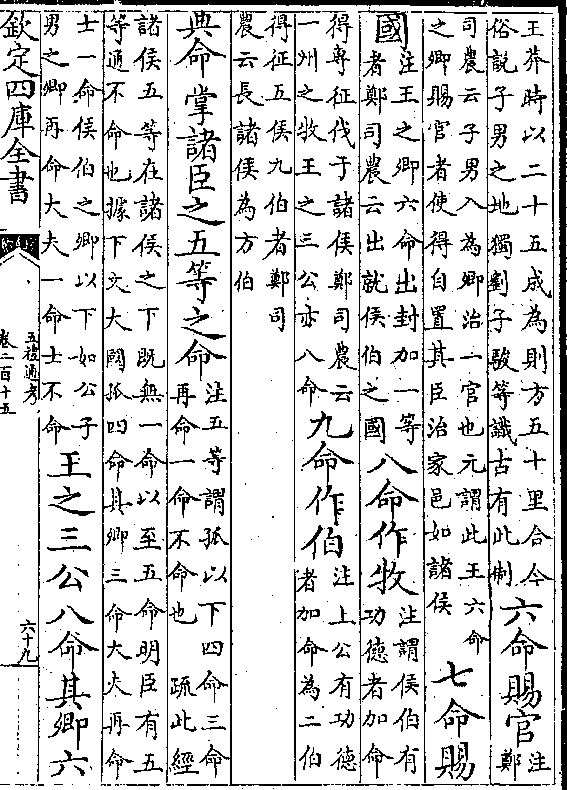 王莽時以二十五成為則方五十里合今
俗說子男之地獨劉子駿等識古有此制
六命賜官
注
鄭
司農云子男入為卿治一官也元謂此王六命
之卿賜官者使得自置其臣治家邑如諸侯
七命賜
國
注王之卿六命出封加一等
者鄭司農云出就侯伯之國
八命作牧
注謂侯伯有
功德者加命
得專征伐于諸侯鄭司農云
一州之牧王之三公亦八命
九命作伯
注上公有功德
者加命為二伯
得征五侯九伯者鄭司
農云長諸侯為方伯
典命掌諸臣之五等之命
注五等謂孤以下四命三命
再命一命不命也 疏此經
諸侯五等在諸侯之下既無一命以至五命明臣有五
等通不命也據下文大國孤四命其卿三命大夫再命
士一命侯伯之卿以下如公子
男之卿再命大夫一命士不命
王之三公八命其卿六
欽定四庫全書
五禮通考
卷二百十五
六十九